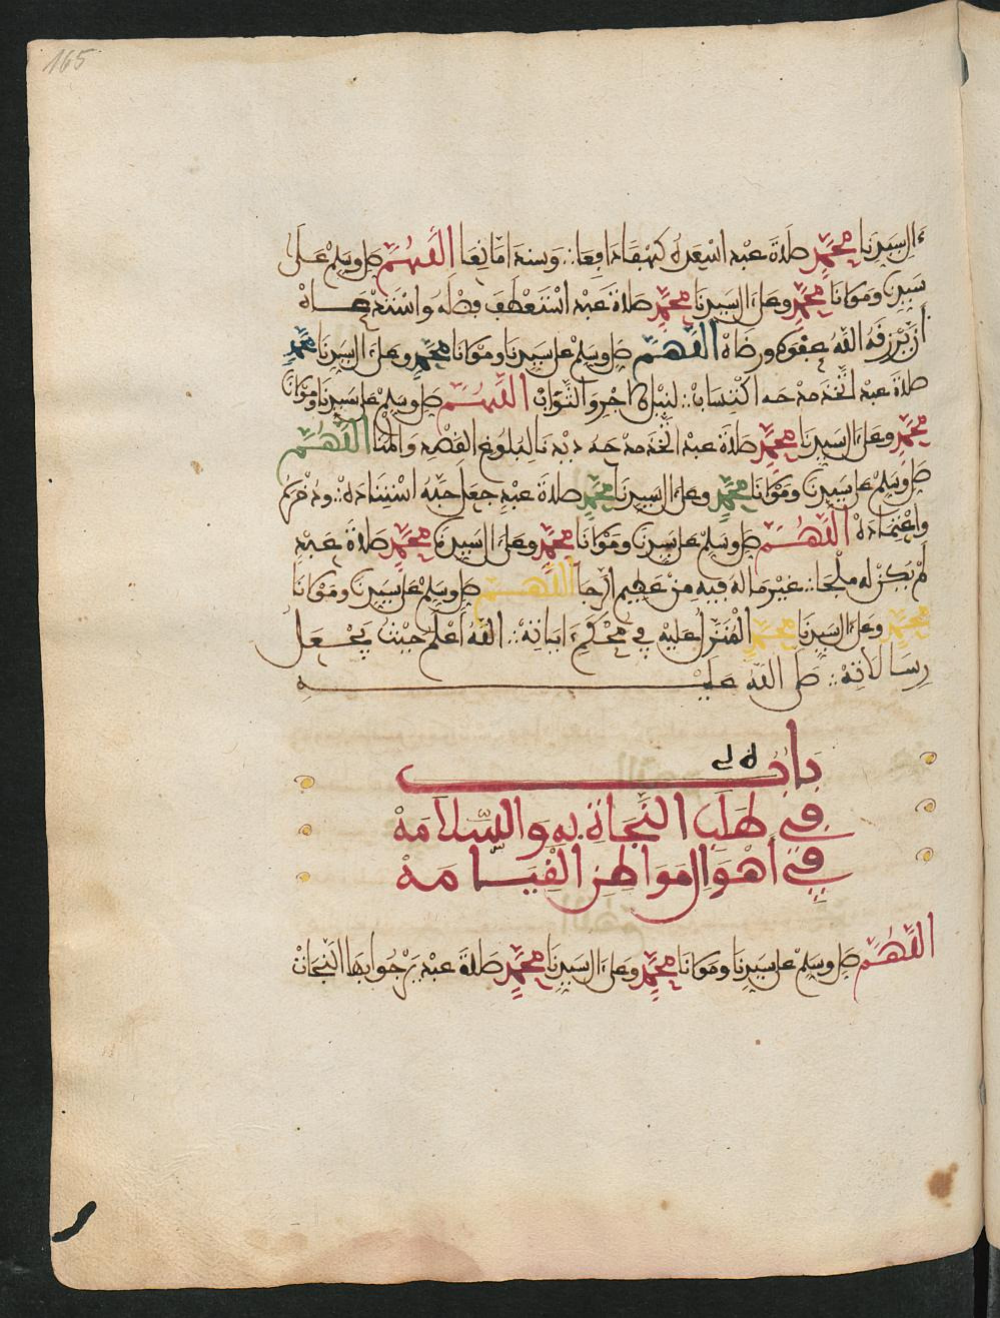 165
ءال سيدنا محمد صلاة عبد استعدله كهفا دافعا وسندا مانعا اللهم صل وسلم على
سيدنا ومولانا محمد وعلى ءال سيدنا محمد صلاة عبد استعطف فضله واستندعاه
أن يرزقه الله عفوه ورضاه اللهم صل وسلم على سيدنا ومولانا محمد وعلى ءال سيدنا محمد
صلاة عبد اتخذ مدحه اكتسابا لنيل الاجر والثواب اللهم صل وسلم على سيدنا ومولانا
محمد وعلى ءال سيدنا محمد صلاة عبد اتخذ مدحه ديدنا لبلوغ القصد والمنا اللهم
صل وسلم على سيدنا ومولانا محمد وعلى ءال سيدنا محمد صلاة عبد جعل حبه استناده
واعتماده اللهم صل وسلم على سيدنا ومولانا محمد وعلى ءال سيدنا محمد صلاة عبد
لم يكن له ملجا غير ما له فيه من عظيم ارجا اللهم صل وسلم على سيدنا ومولانا
محمد وعلى ءال سيدنا محمد المنزل عليه في محكم ءاياته الله اعلم حيث يجعل
رسالاته صلى الله عليه
باب
في طلب النجاة به والسلامة
في أهوال مواطن القيامة
اللهم صل وسلم على سيدنا ومولانا محمد وعلى ءال سيدنا محمد صلاة عبد يرجوا بها النجات